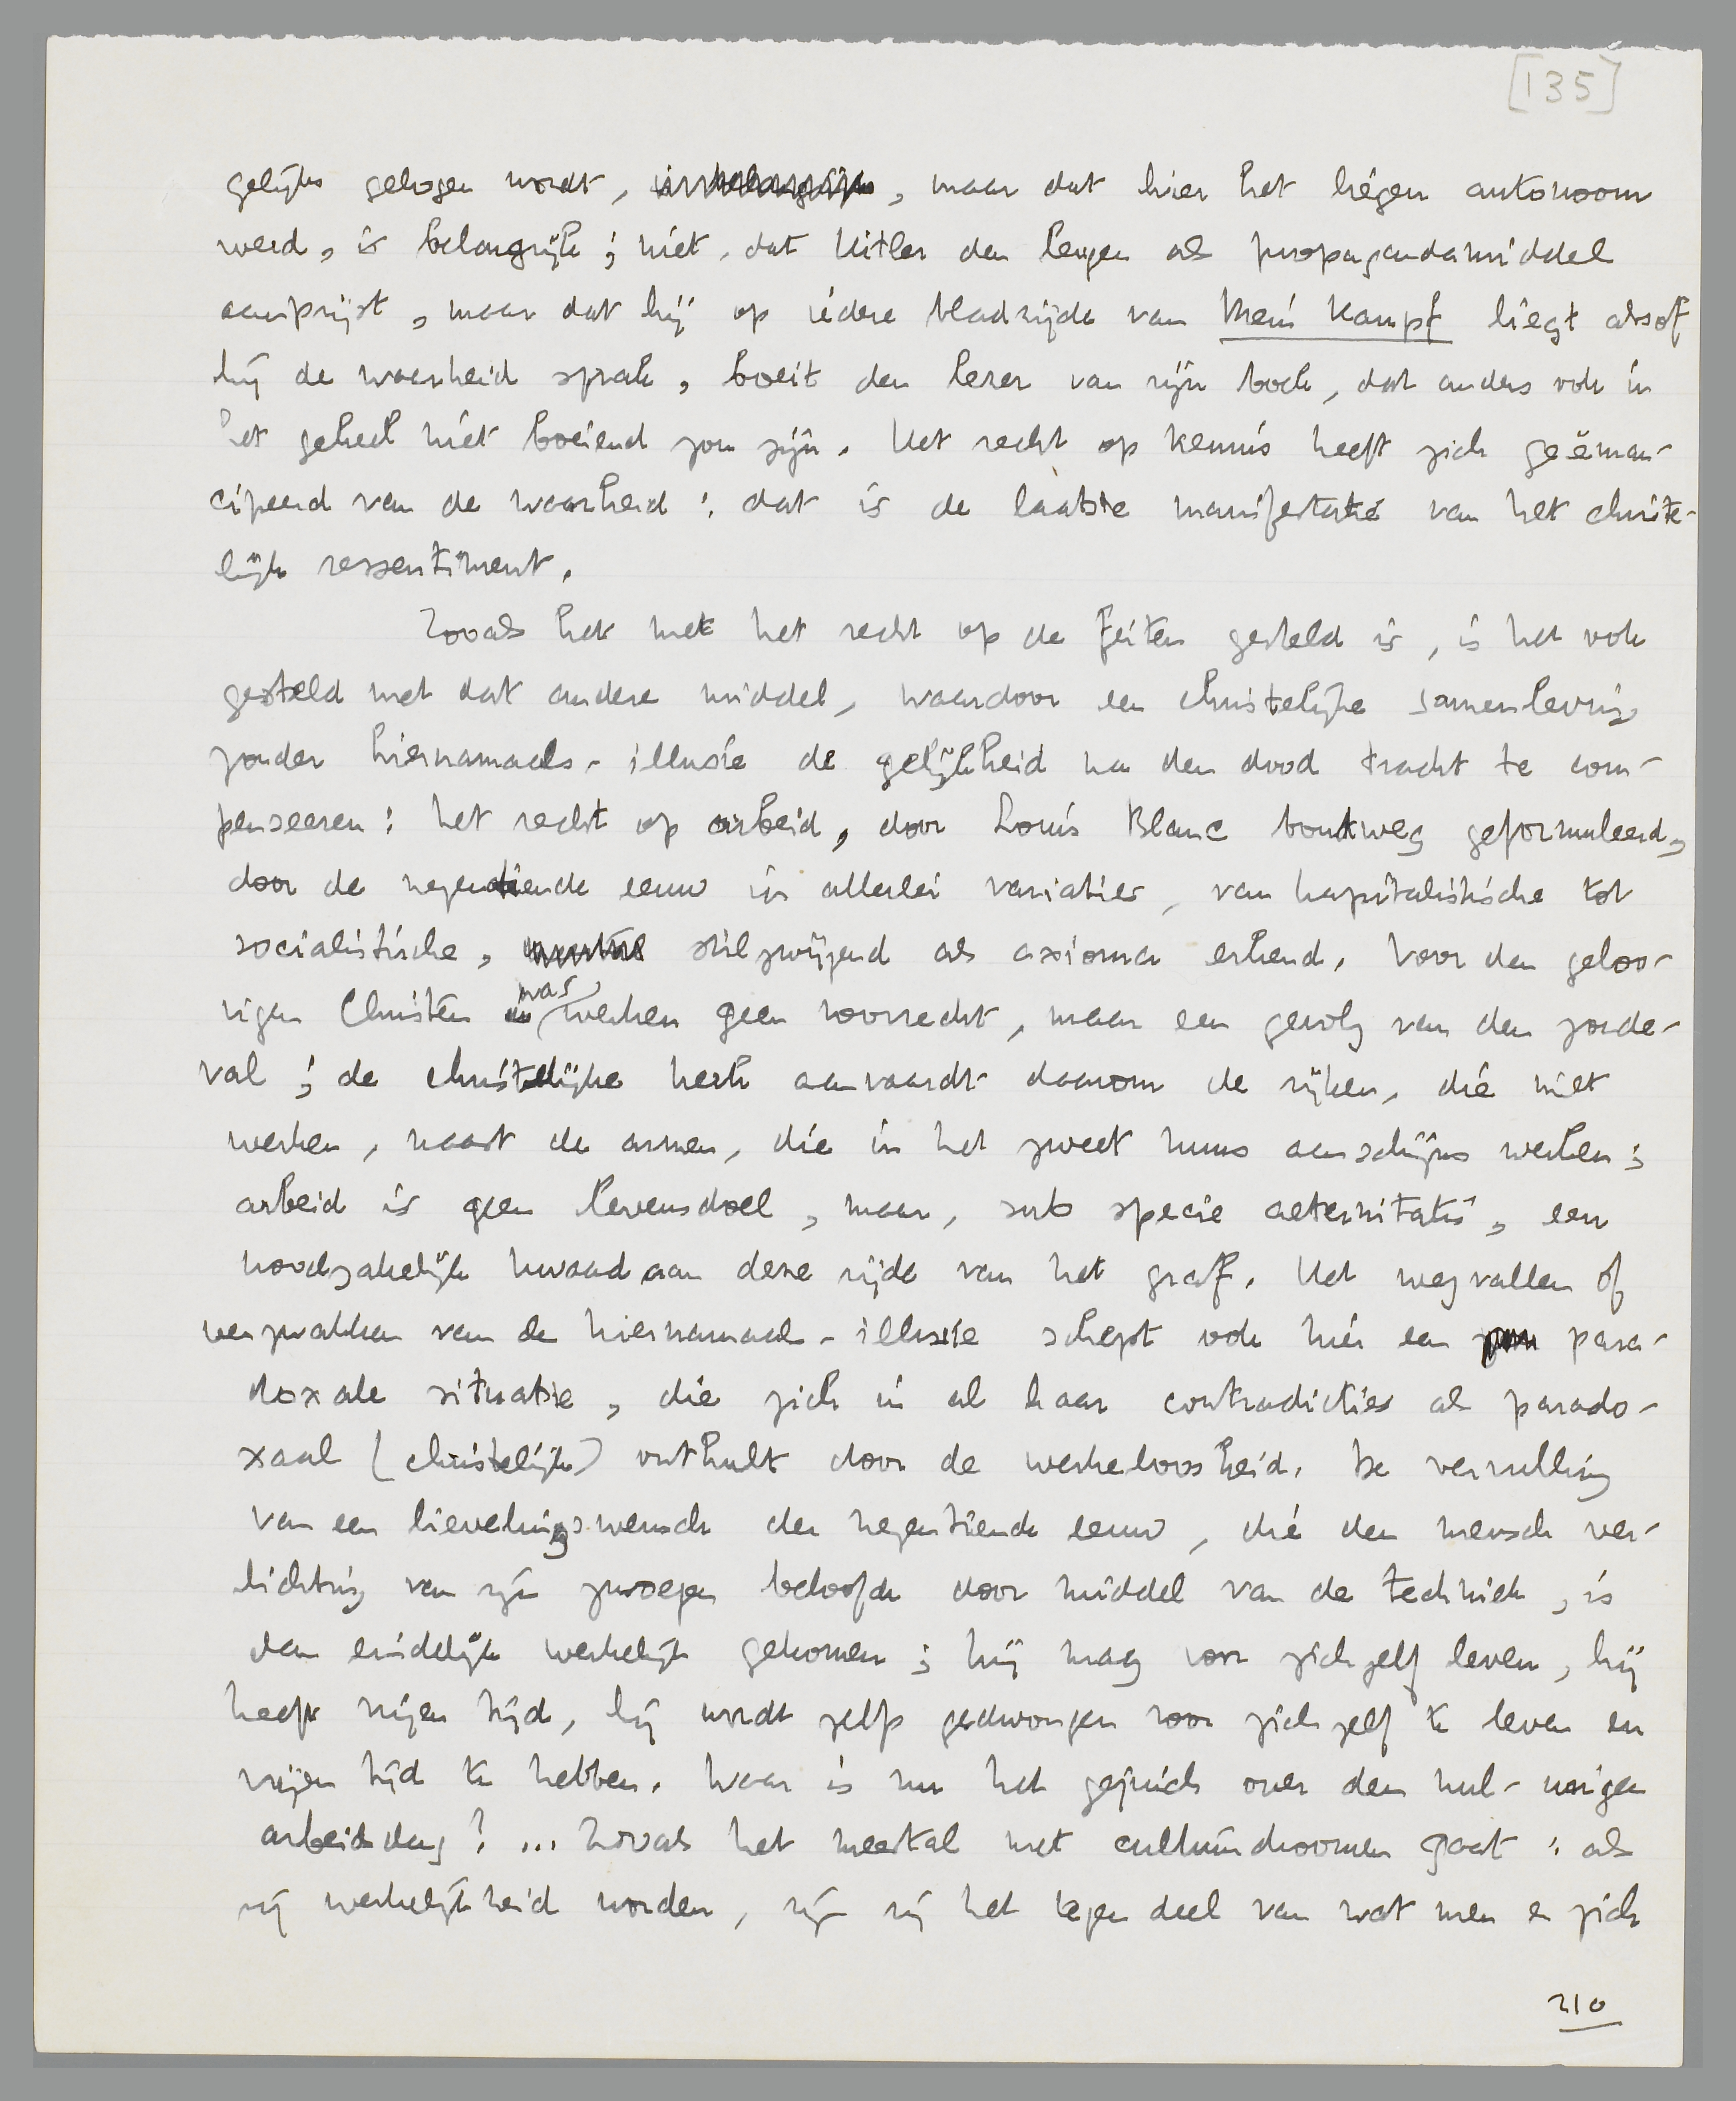 [135]
gelijks gelogen wordt, , maar dat hier het liégen autonoom
werd, is belangrijk; niét, dat Hitler den leugen als propagandamiddel
aanprijst, maar dat hij op iedere bladzijde van Mein Kampf liegt alsof
hij de waarheid sprak, boeit den lezer van zijn boek, dat anders ook in
het geheel niet boeiend zou zijn. Het recht op kennis heeft zich geëman-
cipeerd van de waarheid: dat is de laatste manifestatie van het christe-
lijk ressentiment.
Zooals het met het recht op de feiten gesteld is, is het ook
gesteld met dat andere middel, waardoor een christelijke samenleving
zonder hiernamaals-illusie de gelijkheid na den dood tracht te com-
penseeren: het recht op arbeid, door Louis Blanc boutweg geformuleerd,
door de negentiende eeuw in allerlei variaties, van kapitalistische tot
socialistische, stilzwijgend als axioma erkend. Voor den geloo-
vigen Christen was werken geen voorrecht, maar een gevolg van den zonde-
val; de christelijke kerk aanvaardt daarom de rijken, die niet
werken, naast de armen, die in het zweet huns aanschijns werken;
arbeid is geen levensdoel, maar, sub specie aeternitatis, een
noodzakelijk kwaad aan deze zijde van het graf. Het wegvallen of
verzwakken van de hiernamaals-illusie schept ook hier een para-
doxale situatie, die zich in al haar contradicties als parado-
xaal (christelijk) onthult door de werkeloosheid. De vervulling
van een lievelingswensch der negentiende eeuw, die den mensch ver-
lichting van zijn zwoegen beloofde door middel van de techniek, is
dan eindelijk werkelijk gekomen; hij mag voor zichzelf leven, hij
heeft vrijen tijd, hij wordt zelfs gedwongen voor zichzelf te leven en
vrijen tijd te hebben. Waar is nu het gejuich over den nul-urigen
arbeidsdag? ... Zooals het meestal met cultuurdroomen gaat: als
zij werkelijkheid worden, zijn zij het tegendeel van wat men er zich
210